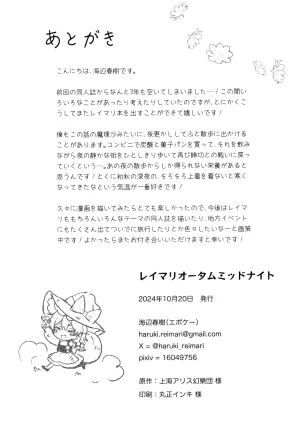 あとがき
こんにちは、海辺春樹です。
前回の同人誌からなんと3年も空いてしまいました…！この間い
ろいろなことがあったり考えたりしていたのですが、とにかくこ
うしてまたレイマリ本を出すことができて嬉しいです！
僕もこの話の魔理沙みたいに、夜更かししてふと散歩に出かける
ことがあります。コンビニで炭酸と菓子パンを買って、それを飲み
ながら夜の静かな街をひとしきり歩いて再び締切との戦いに戻っ
ていくという…。あの夜の散歩からしか得られない栄養があると
思うんです！とくに初秋の深夜の、そろそろ上着を着ないと寒く
なってきたなという気温が一番好きです！
久々に漫画を描いてみたらとても楽しかったので、今後はレイマ
リももちろんいろんなテーマの同人誌を描いたり、地方イベント
にもたくさん出てついでに旅行したりとか色々したいなーと画策
中です！よかったらまたお付き合いいただけますと幸いです！
レイマリオータムミッドナイト
2024年10月20日　発行
海辺春樹(エポケー)
haruki.reimari@gmail.com
X = @haruki_reimari
pixiv = 16049756
原作：上海アリス幻樂団 様
印刷：丸正インキ 様